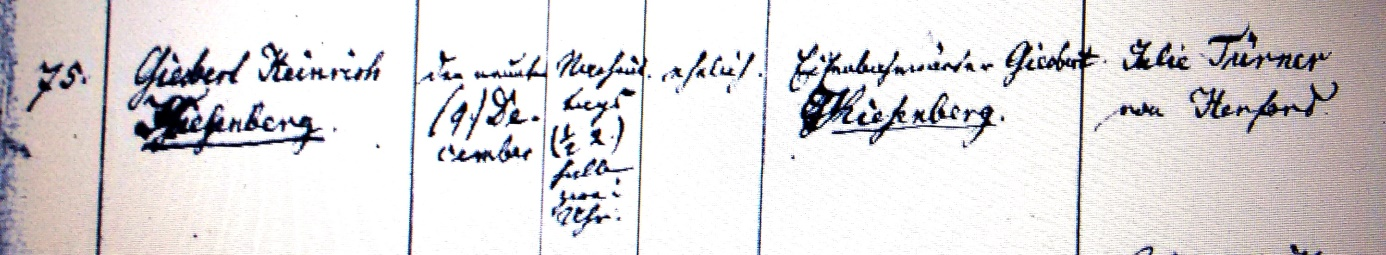 75.
Giesbert Heinrich
Kiesenberg.
den neunten
(9.) De-
cember
Nachmit-
tags
(½ 2.)
halb
zwei
Uhr.
ehelich.
Eisenbahnwärter Giesbert
Kiesenberg.
Julie Türner
von Herford